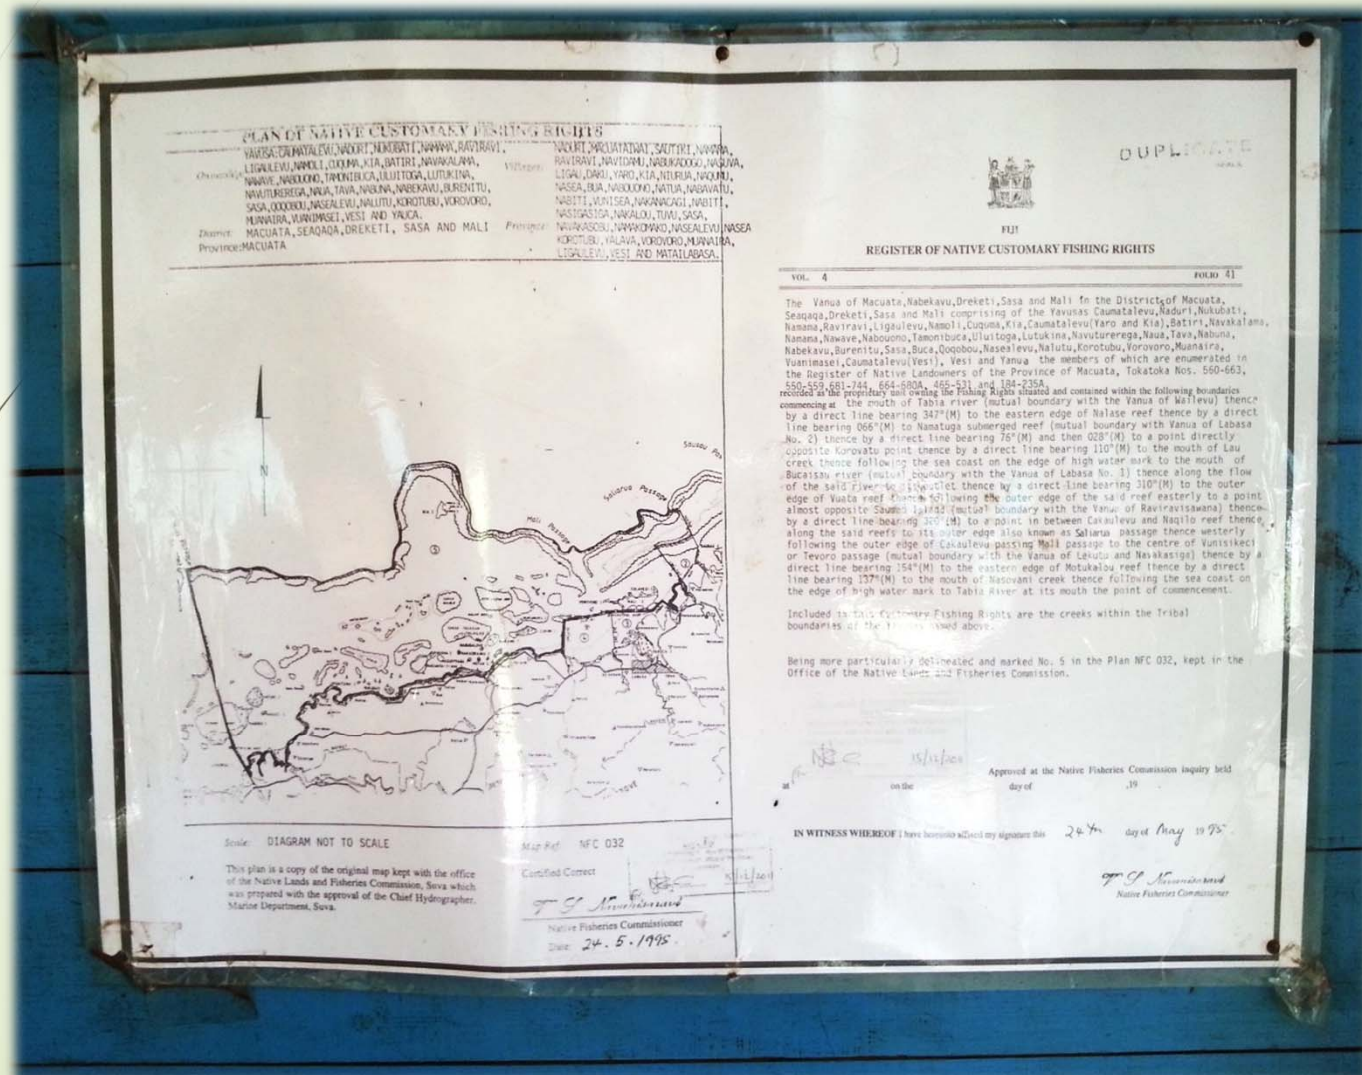 PLAN OF NATIVE CUSTOMARY FISHING RIGHTS
YAVUSA:CAUMATALEVU,NADURI,NUKUBATI,NAMAMA,RAVIRAVI,
LIGAULEVU,NAMOLI,CUQUMA,KIA,BATIRI,NAVAKALAMA,
NAWAVE,NABOUONO,TAMONIBUCA,ULUITOGA,LUTUKINA,
NAVUTUREREGA,NAUA,TAVA,NABUNA,NABEKAVU,BURENITU,
SASA,QOQOBOU,NASEALEVU,NALUTU,KOROTUBU,VOROVORO,
MUANAIRA,VUANIMASEI,VESI AND YAUCA.
District: MACUATA,SEAQAQA,DREKETI, SASA AND MALI
Province:MACUATA
Villages:
NADURI,MACUATAIWAI,SAUTIKI,NAMAMA,
RAVIRAVI,NAVIDAMU,NABUKADOGO,NASUVA,
LIGAU,DAKU,YARO,KIA,NIURUA,NAQUMU,
NASEA,BUA,NABOUONO,NATUA,NABAVATU,
NABITI,VUNISEA,NAKANACAGI,NABITI,
NASIGASIGA,NAKALOU,TUVU,SASA,
Province: NAVAKASOBU,NAMAKOMAKO,NASEALEVU,NASEA
KOROTUBU,YALAVA,VOROVORO,MUANAIRA,
LIGAULEVU,VESI AND MATAILABASA.
N
Mali Passage
Saliarua Passage
Sausau
Scale: DIAGRAM NOT TO SCALE
This plan is a copy of the original map kept with the office
of the Native Lands and Fisheries Commission, Suva which
was prepared with the approval of the Chief Hydrographer,
Marine Department, Suva.
Map Ref: NFC 032
Certified Correct
Native Fisheries Commissioner
Date: 24.5.1995
DUPLICATE
FIJI
REGISTER OF NATIVE CUSTOMARY FISHING RIGHTS
VOL. 4 FOLIO 41
The Vanua of Macuata,Nabekavu,Dreketi,Sasa and Mali in the District of Macuata,
Seaqaqa,Dreketi,Sasa and Mali comprising of the Yavusas Caumatalevu,Naduri,Nukubati,
Namama,Raviravi,Ligaulevu,Namoli,Cuquma,Kia,Caumatalevu(Yaro and Kia),Batiri,Navakalama,
Namama,Nawave,Nabouono,Tamonibuca,Uluitoga,Lutukina,Navuturerega,Naua,Tava,Nabuna,
Nabekavu,Burenitu,Sasa,Buca,Qoqobou,Nasealevu,Nalutu,Korotubu,Vorovoro,Muanaira,
Vuanimasei,Caumatalevu(Vesi), Vesi and Yanua the members of which are enumerated in
the Register of Native Landowners of the Province of Macuata, Tokatoka Nos. 560-663,
550-559,681-744, 664-680A, 465-531 and 184-235A.
recorded as the proprietary unit owning the Fishing Rights situated and contained within the following boundaries
commencing at the mouth of Tabia river (mutual boundary with the Vanua of Wailevu) thence
by a direct line bearing 347°(M) to the eastern edge of Nalase reef thence by a direct
line bearing 066°(M) to Namatuga submerged reef (mutual boundary with Vanua of Labasa
No. 2) thence by a direct line bearing 76°(M) and then 028°(M) to a point directly
opposite Korovatu point thence by a direct line bearing 110°(M) to the mouth of Lau
creek thence following the sea coast on the edge of high water mark to the mouth of
Bucaisau river (mutual boundary with the Vanua of Labasa No. 1) thence along the flow
of the said river to outlet thence by a direct line bearing 310°(M) to the outer
edge of Vuata reef thence following the outer edge of the said reef easterly to a point
almost opposite Sausau Island (mutual boundary with the Vanua of Raviravisawana) thence
by a direct line bearing 320°(M) to a point in between Cakaulevu and Naqilo reef thence
along the said reefs to its outer edge also known as Saliarua passage thence westerly
following the outer edge of Cakaulevu passing Mali passage to the centre of Vunisikeci
or Tevoro passage (mutual boundary with the Vanua of Lekutu and Nasakasiga) thence by a
direct line bearing 154°(M) to the eastern edge of Motukalou reef thence by a direct
line bearing 137°(M) to the mouth of Nasovani creek thence following the sea coast on
the edge of high water mark to Tabia River at its mouth the point of commencement.
Included in this Customary Fishing Rights are the creeks within the Tribal
boundaries of the named above.
Being more particularly delineated and marked No. 5 in the Plan NFC 032, kept in the
Office of the Native Lands and Fisheries Commission.
Approved at the Native Fisheries Commission inquiry held
at on the day of ,19
IN WITNESS WHEREOF I have hereunto affixed my signature this 24th day of May 1995.
Native Fisheries Commissioner